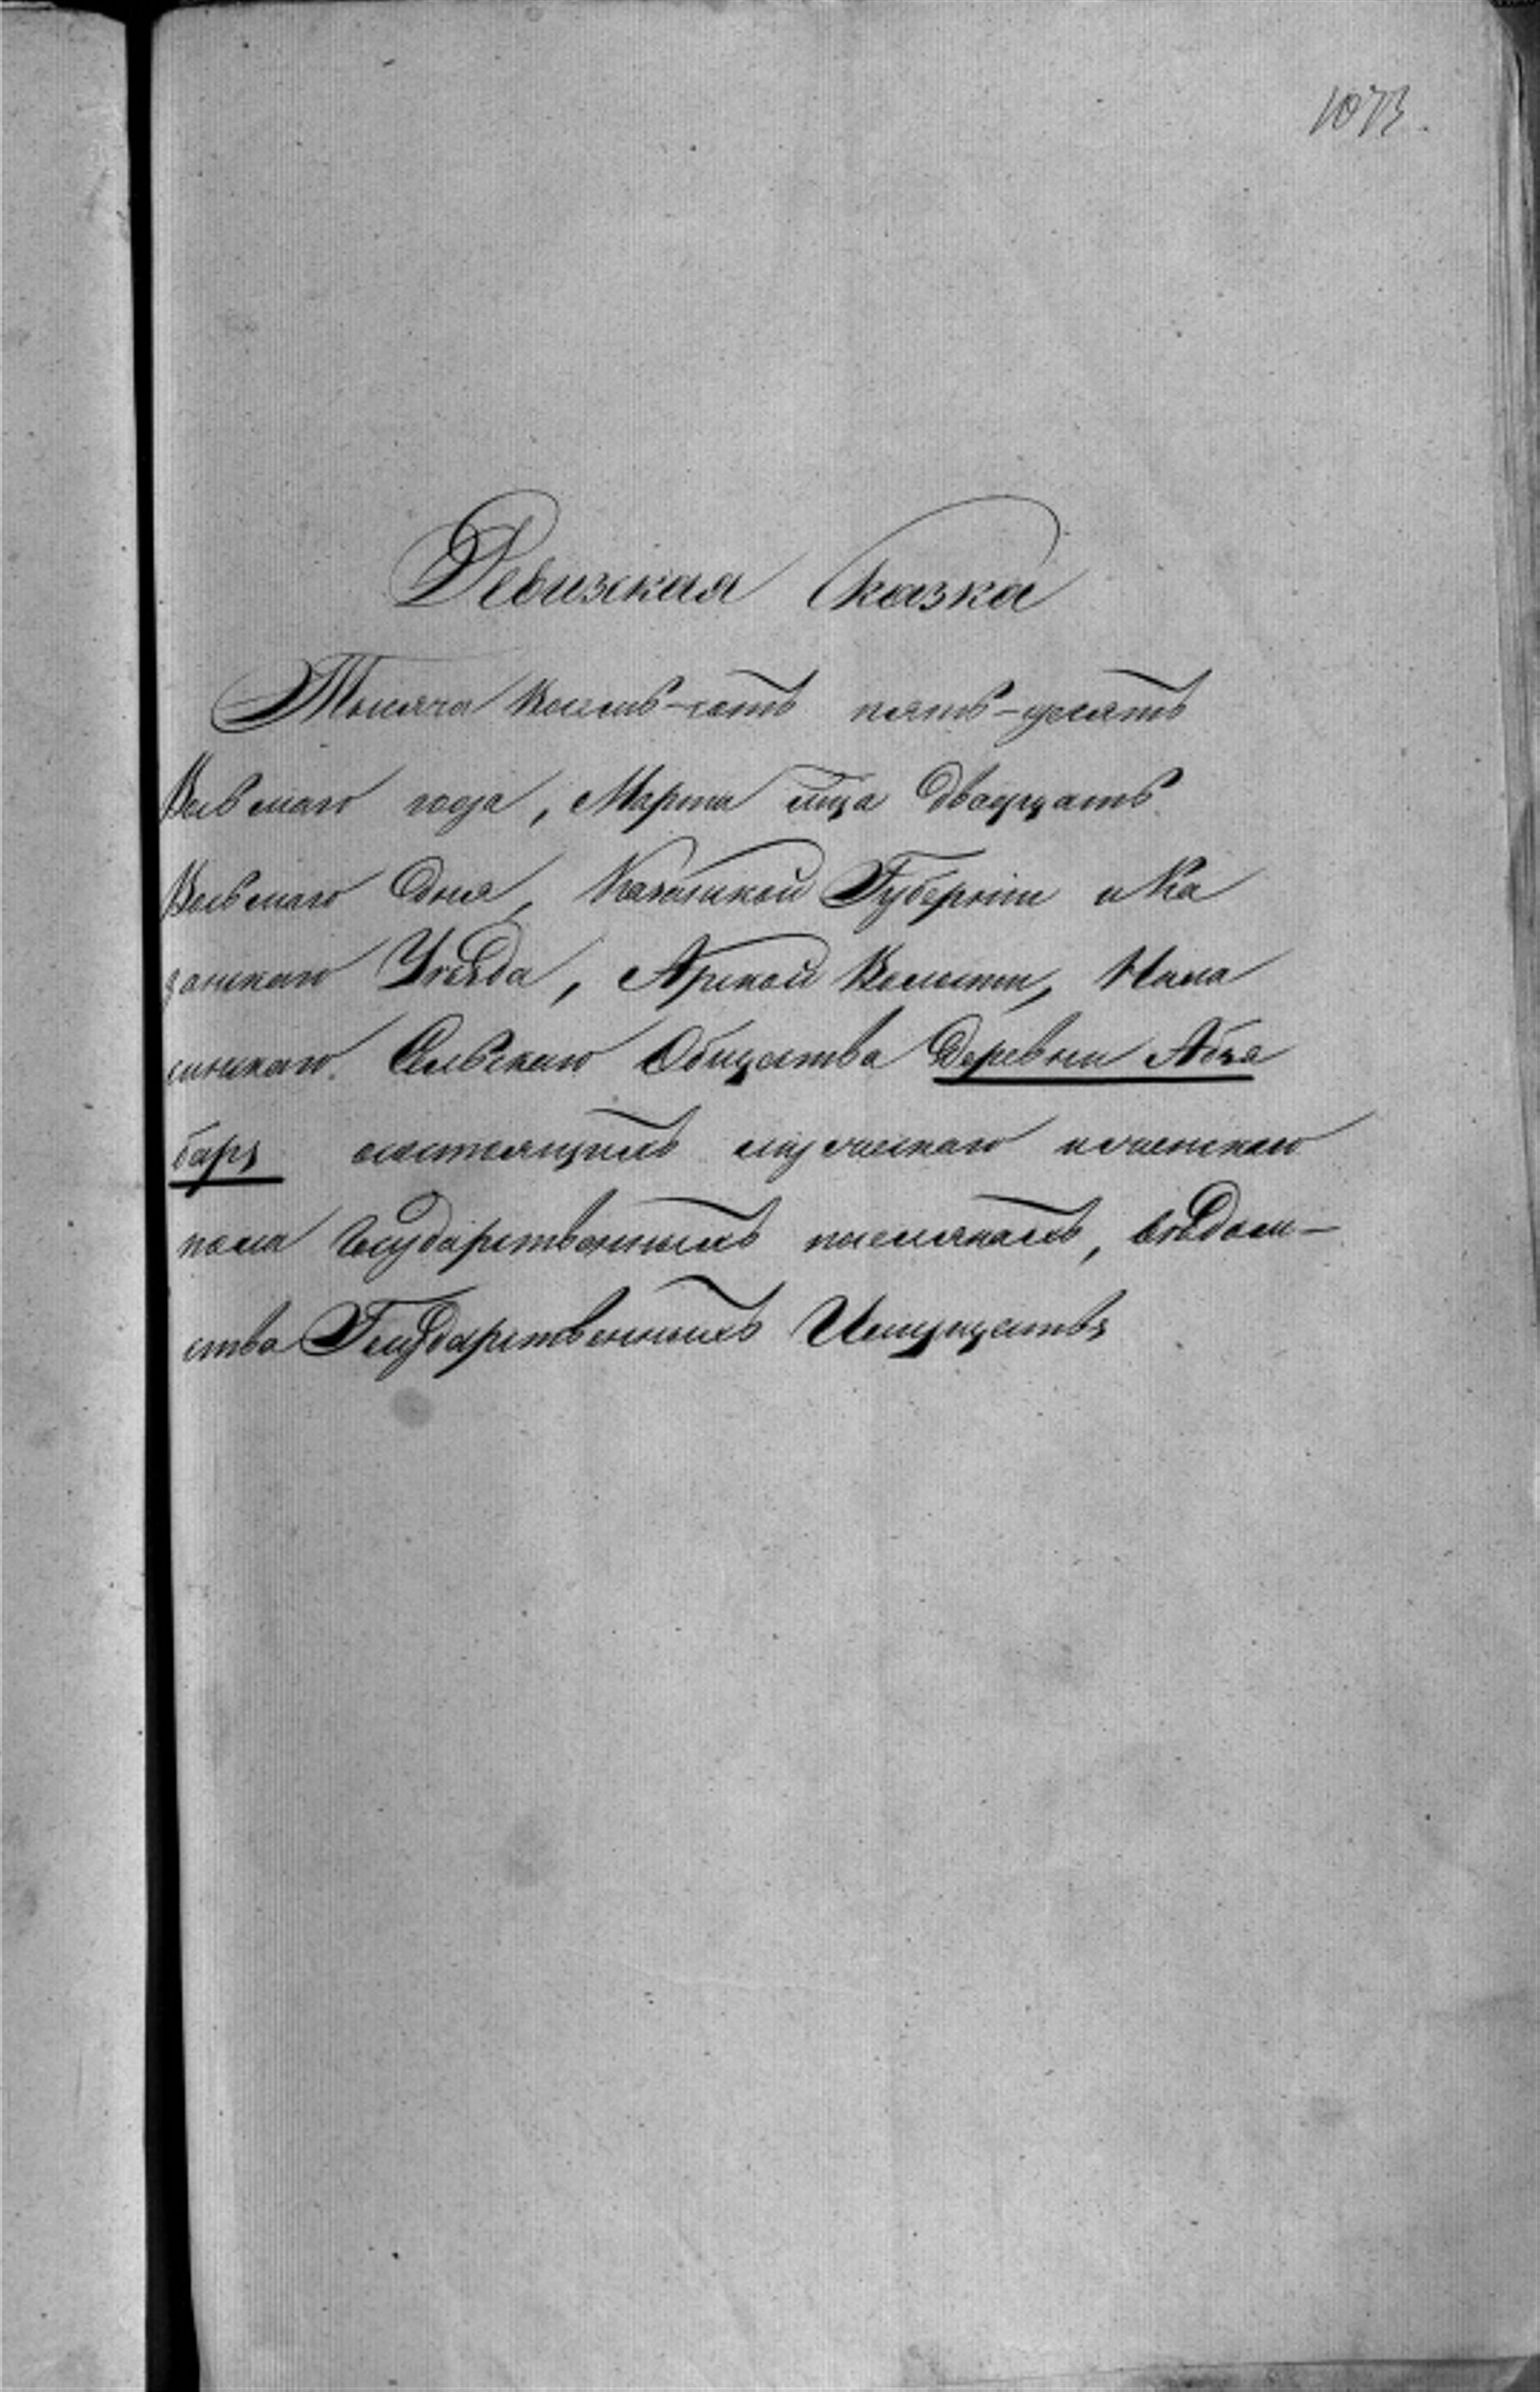 1073.
Ревизская Сказка
Тысяча восемь-сотъ пять-десятъ
Восьмаго года, Марта м҃ца двадцать
Восьмаго дня, Казанской Губерніи и Ка
занскаго Уѣзда, Арской Волости,
Сельскаго Общества Деревни Абза
баръ состоящихъ мужескаго и женскаго
пола Государственныхъ поселянахъ, вѣдом-
ства Государственныхъ Имуществъ